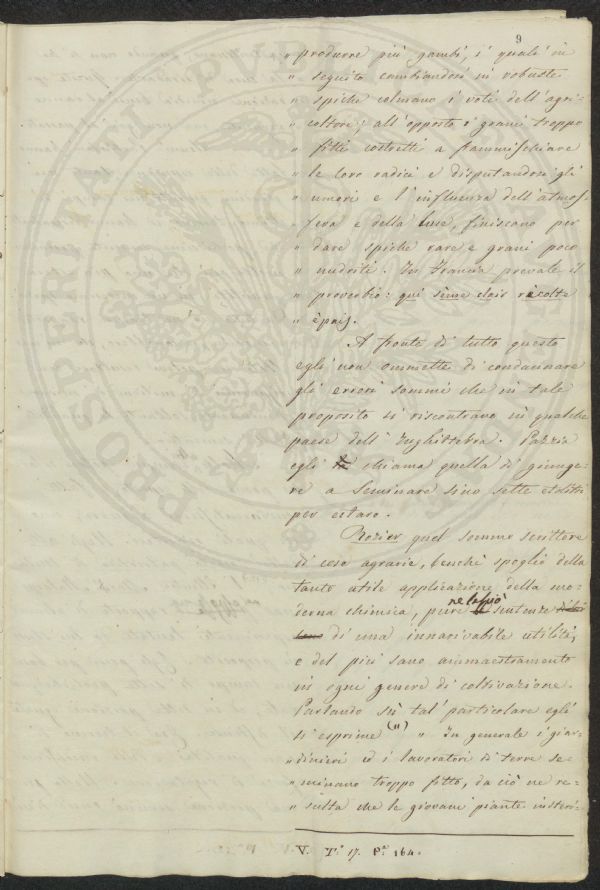 9
" produrre più gambi, i quali in
" seguito cambiandosi in robuste
" spiche colmano i voti dell'agri-
" coltore; all'opposto i grani troppo
" fitti costretti a frammischiare
" le loro radici e disputandosi gli
" umori e l'influenza dell'atmos-
" fera e della luce, finiscono per
" dare spiche rare e grani poco
" nudriti. In Francia prevale il
" proverbio: qui sème clair rècolte
" èpais.
A fronte di tutto questo
egli non ommette di condannare
gli errori sommi che in tale
proposito si riscontrano in qualche
paese dell'Inghilterra. Pazzia
egli chiama quella di giunge-
re a seminare sino sette etolitri
per ectaro.
Rozier quel sommo scrittore
di cose agrarie, benchè spoglio della
tanto utile applicazione della mo-
derna chimica, pure ne lasciò sentenze
di una innarivabile utilità,
e del più sano ammaestramento
in ogni genere di coltivazione.
Parlando sù tal' particolare egli
si esprime (11) " In generale i giar-
" dinieri ed i lavoratori di terre se-
" minano troppo fitto, da ciò ne re-
" sulta che le giovani piante insteri-
V. T.º 17. P.ª 164.
PROSPERITATI PVBLICAE